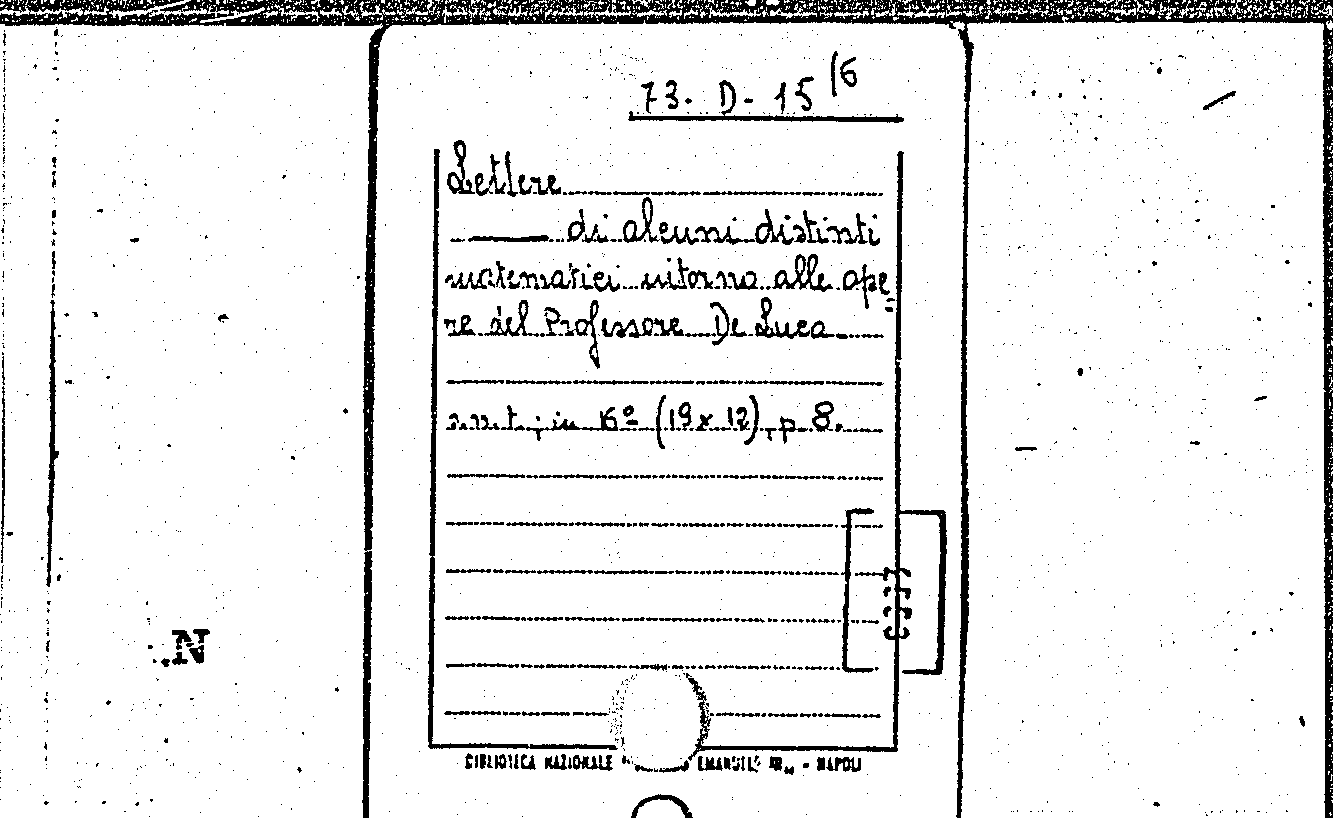 73. D. 15 /6
Lettere
di alcuni distinti
matematici intorno alle ope
re del Professore De Luca
s.n.t.; in 16º (19 x 12), p. 8.
N
BIBLIOTECA NAZIONALE EMANUELE III - NAPOLI